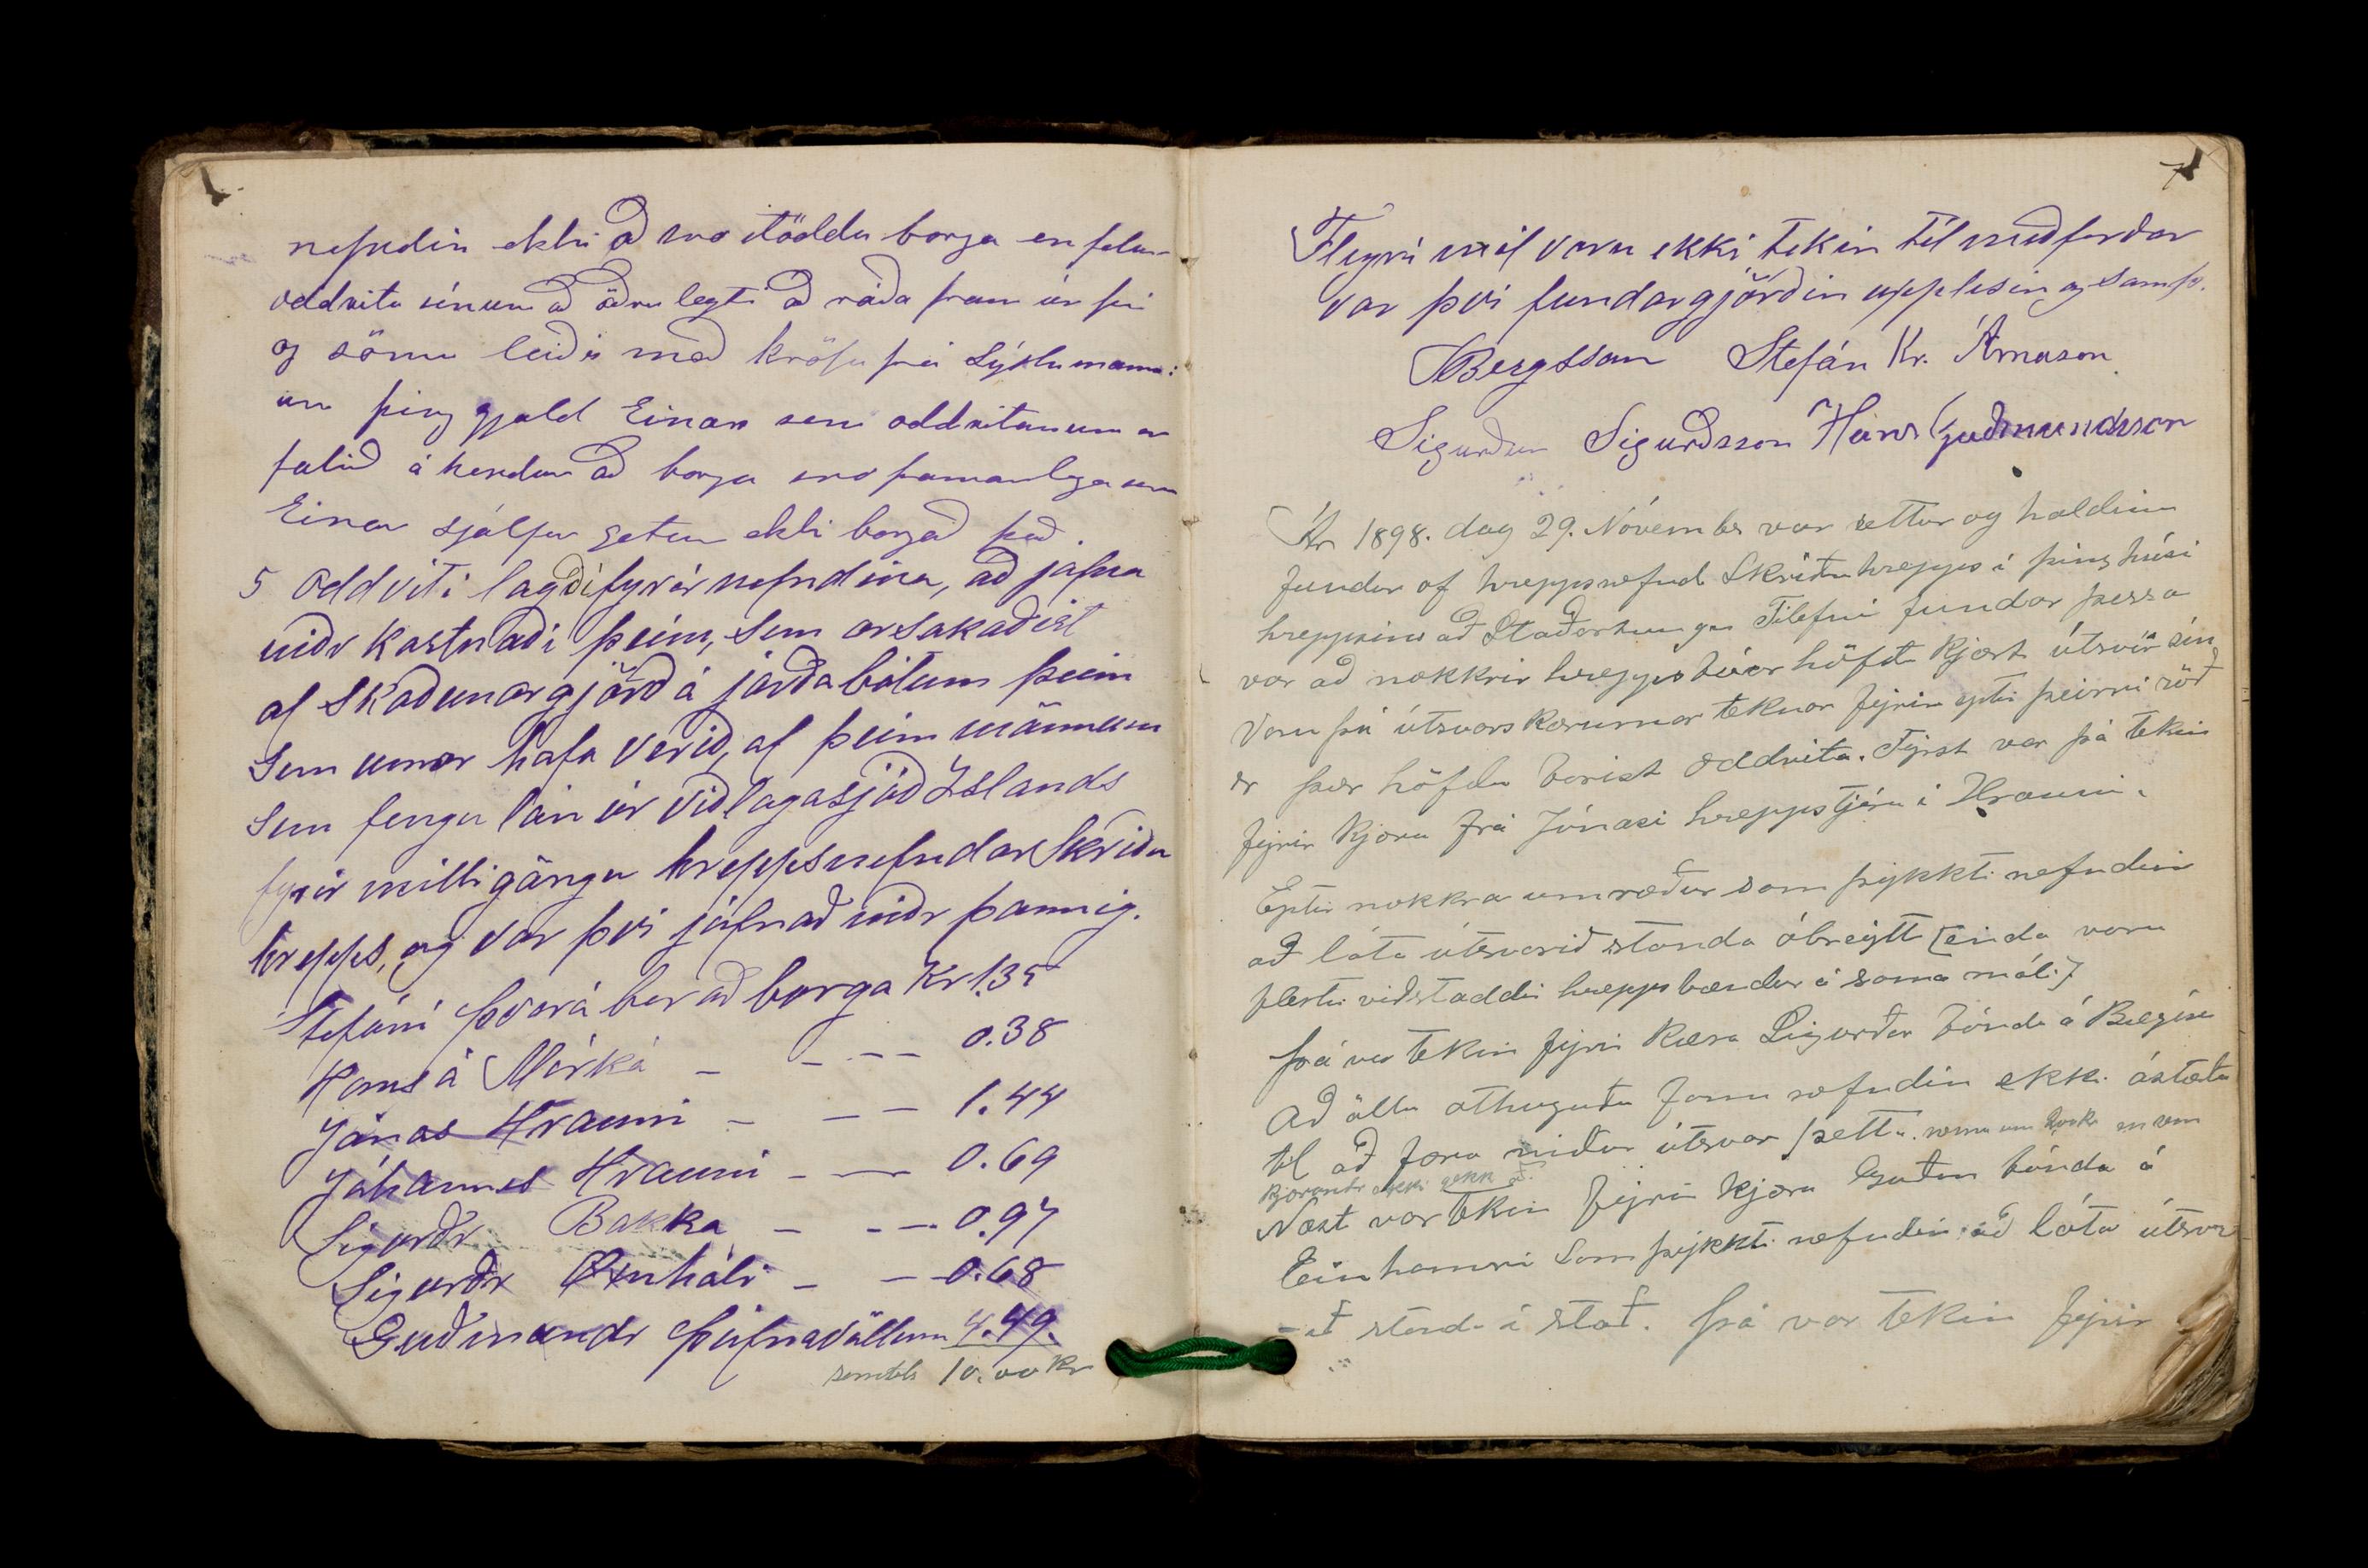 nefndin ekki að svo stöddu borga en felur
oddvita sínum að öðru legti að ráða fram úr því
og sömu leiðis með kröfu frá Sýslumanni
um þing gjald Einars sem oddvitanum er
falið á hendur að borga svo framarlega sem
Einar sjálfur getur ekki borgað það.
5 Oddviti lagði fyrir nefndina, að jafna
niðr kostnaði þeim, sem orsakaðist
af skoðunargjörð á jarðabótum þeim
sem unnar hafa verið, af þeim mönnum
sem fengu lán úr Viðlagasjóð Íslands
fyrir milligöngu hreppsnefndar Skriðu
hrepps, og var því jafnað niðr þannig.
Stefán í Þverá ber að borga Kr 1.35
Hans á Myrká - - - - 0.38
Jónas Hrauni - - - 1.44
Jóhannes Hrauni - - - 0.69
Sigurðr Bakka - - - 0.97
Sigurðr Öxnhóli - - 0.68
Guðmundr Þúfnavöllum 4.49.
samtals 10.00 Kr
7
Fleyri mál voru ekki tekin til meðferðar
var því fundargjörðin upplesin og samþ.
Bergsson Stefán Kr. Árnason
Sigurður Sigurðsson Hans Guðmundsson
Ár 1898. dag 29. Nóvember var settur og haldinn
fundur af hreppsnefnd Skriðuhrepps í þinghúsi
hreppsins að Staðartungu Tilefni fundar þessa
var að nokkrir hreppsbúar höfðu kjært útsvör sín
Voru þá útsvarskærurnar teknar fyrir eptir þeirri röð
er þær höfðu borist oddvita. Fyrst var þá tekin
fyrir kjæra frá Jónasi hreppstjóra í Hrauni.
Eptir nokkra umræður sam þykkti nefndin
að láta útsvarið standa óbreytt (enda voru
flestir viðstaddir hreppsbændur á sama máli)
Þá var tekin fyrir kæra Sigurðar bónda á Bægisá
Að öllu athuguðu fann nefndin ekki ástæðu
til að færa niður útsvar þetta. nema um en sem
kjærandi ekki gekk að.
Næst var tekin fyrir kjæra bónda á
Einhamri Samþykkti nefndin að láta útsvar
-ið standa í stað. Þá var tekin fyrir